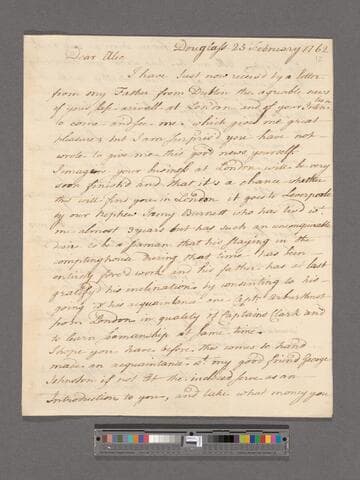 Douglass 23 February 1762
Dear Alic
I have Just now received by a letter
from my Father from Dublin the agreeable news
of your safe arrivall at London and of your Intention
to come and see me which gives me great
pleasure; but I am Surpris'd you have not
wrote to give me this good news yourself.
I imagine your business at London will be very
soon finish'd and that it's a chance whether
this will find you in London it goes to Leverpoole
by our Nephew Jamy Burnett who has lived wt.
me almost 3 years but has such an unconquerable
desire to be a seaman that his staying in the
comptinghouse during that time has been
entirely forc'd work and his father has at last
gratify'd his inclinations by consenting to his
going wt. his acquaintance one Captn. Arbuthnot
from London in quality of Captains Clark and
to learn Seamanship at same time.
I hope you have before this comes to hand
made an acquaintance wt. my good friend George
Johnston if not let the inclosed serve as an
Introduction to you, and take what money you